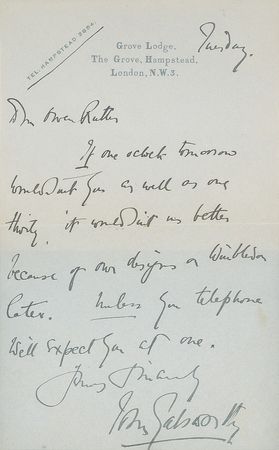 TEL: HAMPSTEAD 3684.
Grove Lodge,
The Grove, Hampstead,
London, N.W.3.
Tuesday.
Dear Owen Rutter
If one oclock tomorrow
would suit you as well as one
thirty, it would suit us better
because of our designs on Wimbledon
later. Unless you telephone
we'll expect you at one.
Yours sincerely
John Galsworthy